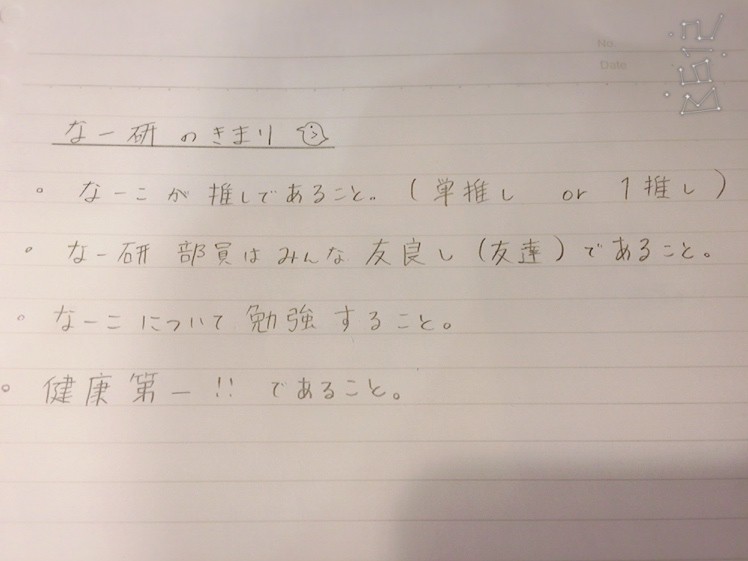 No.
Date
なー研のきまり
。なーこが推しであること。(単推し or 1推し)
。なー研 部員はみんな友良し(友達)であること。
。なーこについて勉強すること。
。健康第一!! であること。